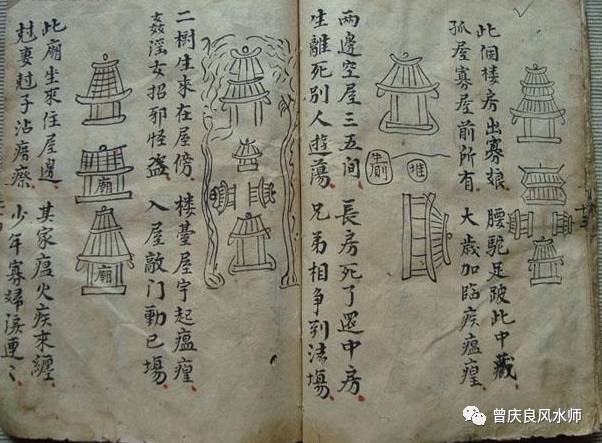 此個楼房出寡娘 腰駝足跛此中藏
孤屋寡屋前所有 大歲加臨疾瘟
堆
兩邊空屋三五间 長房死了還中房
生離死別人遊蕩 兄弟相争到法塲
二樹生來在屋傍 楼臺屋宇起瘟
姦淫女招邪怪盗 入屋敲门動已塲
廟
廟
此廟坐來住屋邊 其家瘟火疾來纏
尅妻尅子沾瘵 少年寡婦淚連〻
曾庆良风水师